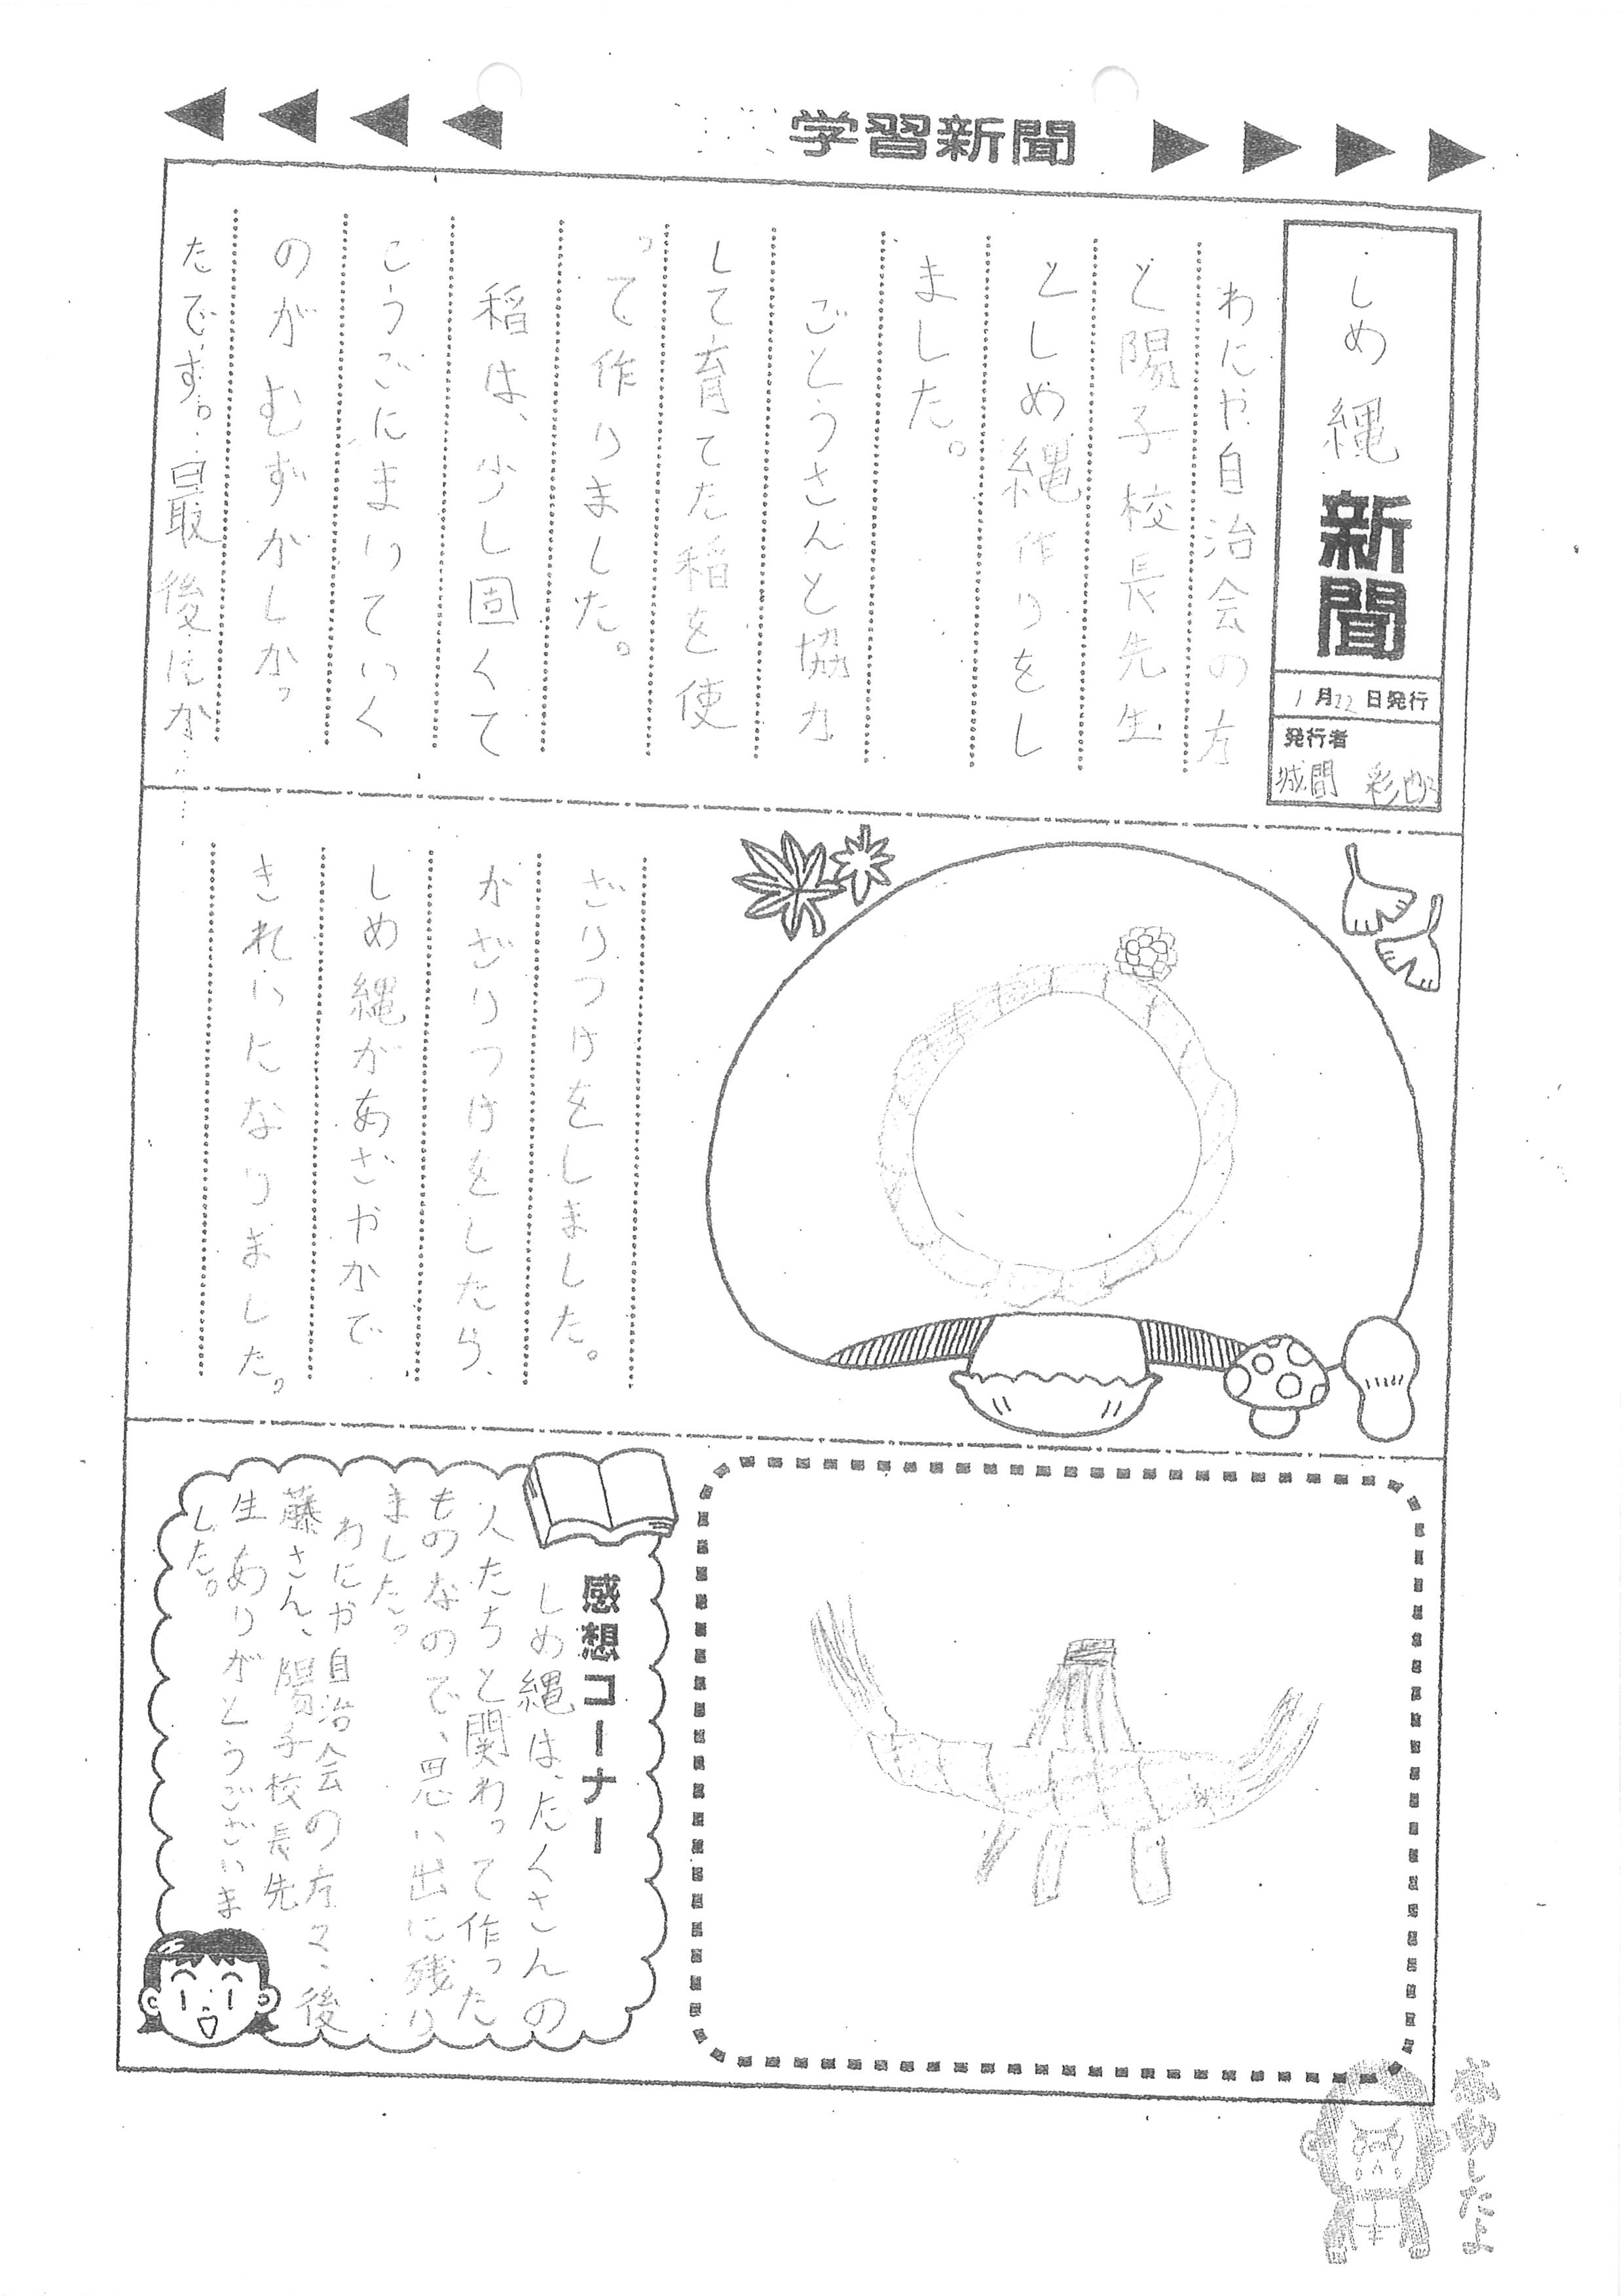 学習新聞
しめ縄新聞
1月22日発行
発行者
城間
わにや自治会の方
と陽子校長先生
としめ縄作りをし
ました。
ごとうさんと協力
して育てた稲を使
って作りました。
稲は、少し固くて
こうごにまいていく
のがむずかしかっ
たです。最後にか
ざりつけをしました。
かざりつけをしたら、
しめ縄があざやかで
きれいになりました。
感想コーナー
しめ縄は、たくさんの
人たちと関わって作った
ものなので、思い出に残り
ました。
わにや自治会の方々、後
藤さん、陽子校長先
生ありがとうございま
した。
感動したよ